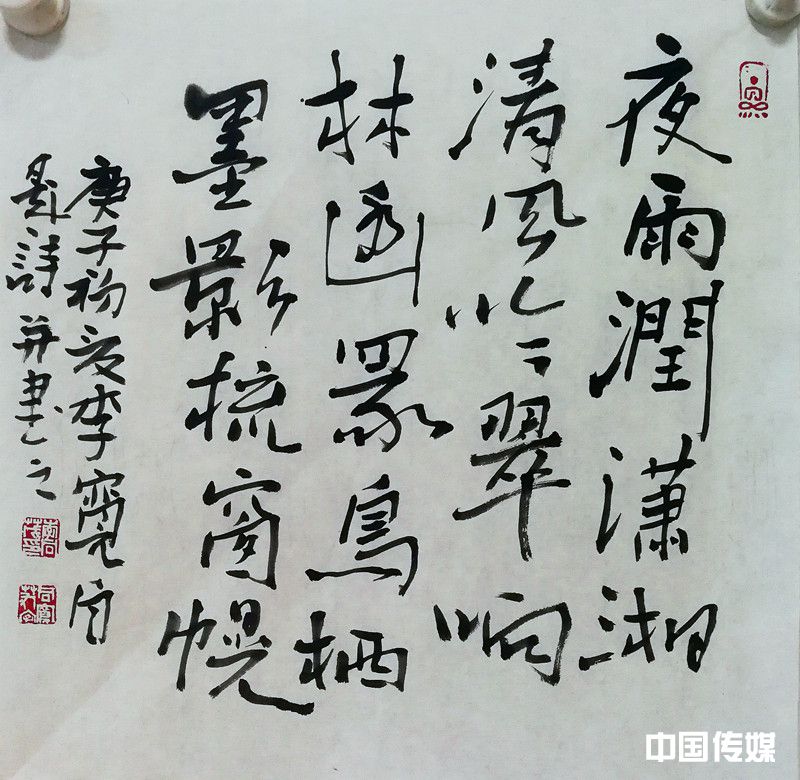 夜雨潤瀟湘
清风吟翠响
林幽眾鳥栖
墨影梳窗幌
庚子初夏李
詩并書之
中国传媒